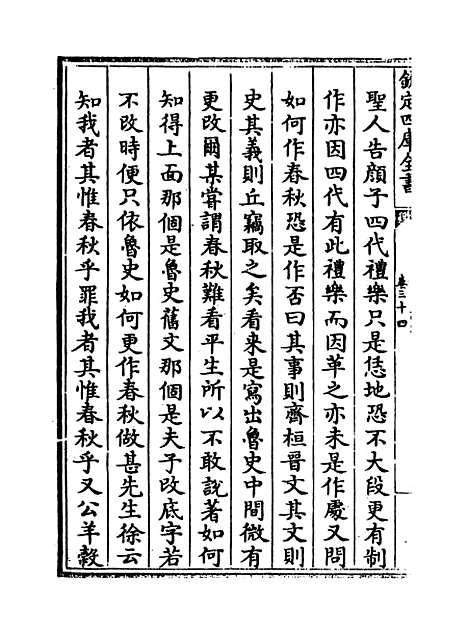 欽定四庫全書
卷三十四
聖人告顔子四代禮樂只是恁地恐不大段更有制
作亦因四代有此禮樂而因革之亦未是作處又問
如何作春秋恐是作否曰其事則齊桓晉文其文則
史其義則丘竊取之矣看來是寫出魯史中間微有
更改爾某嘗謂春秋難看平生所以不敢說著如何
知得上面那個是魯史舊文那個是夫子改底字若
不改時便只依魯史如何更作春秋做甚先生徐云
知我者其惟春秋乎罪我者其惟春秋乎又公羊穀